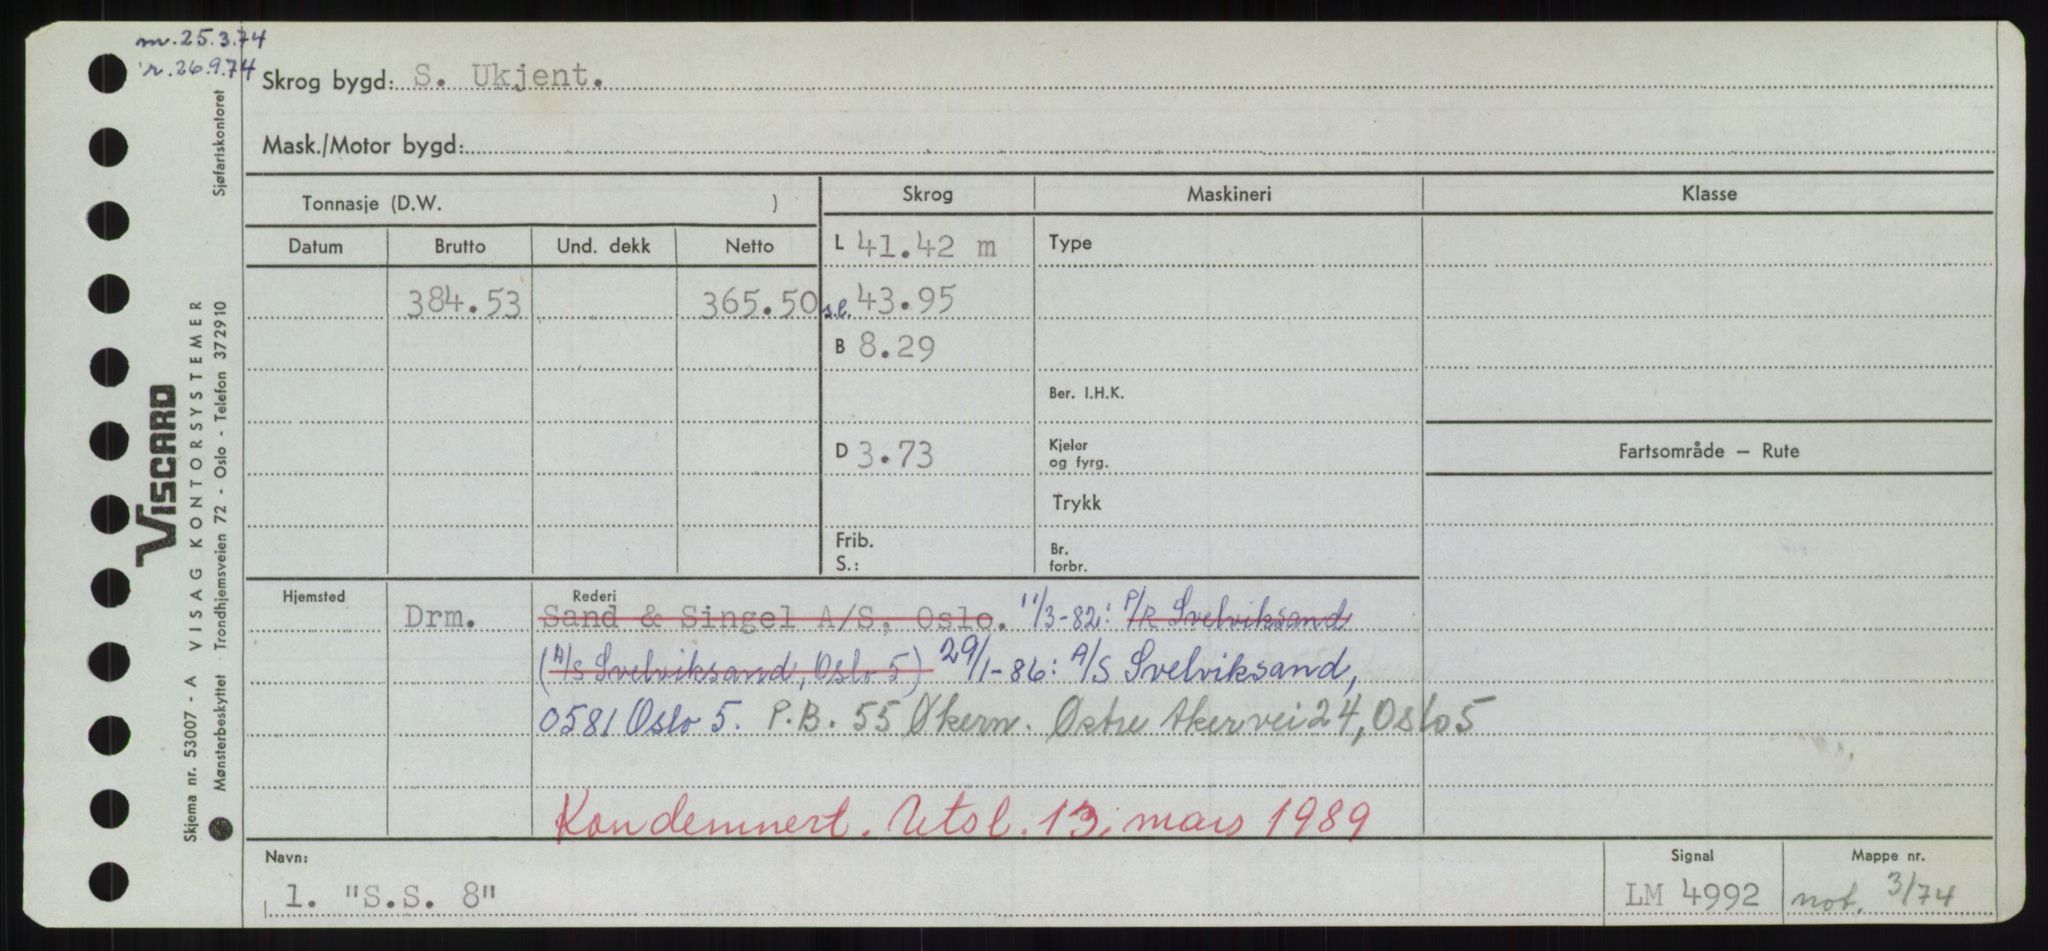 m. 25.3.74
r. 26.9.74
Skrog bygd: S. Ukjent.
Mask./Motor bygd:
Tonnasje (D.W. )
Skrog
Maskineri
Klasse
Datum
Brutto
Und. dekk
Netto
L 41.42 m
Type
384.53
365.50
s.l. 43.95
B 8.29
Ber. I.H.K.
D 3.73
Kjeler
og fyrg.
Fartsområde — Rute
Trykk
Frib.
S.:
Br.
forbr.
Hjemsted
Rederi
Drm.
Sand & Singel A/S, Oslo. 11/3-82: P/R Svelviksand
(A/S Svelviksand, Oslo 5) 29/1-86: A/S Svelviksand,
0581 Oslo 5. P.B. 55 Økern. Østre Aker vei 24, Oslo 5
Kondemnert. Utsl. 13. mars 1989
Navn:
1. "S.S. 8"
Signal
LM 4992
Mappe nr.
not. 3/74
Skjema nr. 53007 - A VISAG KONTORSYSTEMER
Mønsterbeskyttet · Trondhjemsveien 72 - Oslo - Telefon 372910
Sjøfartskontoret
VISCARD